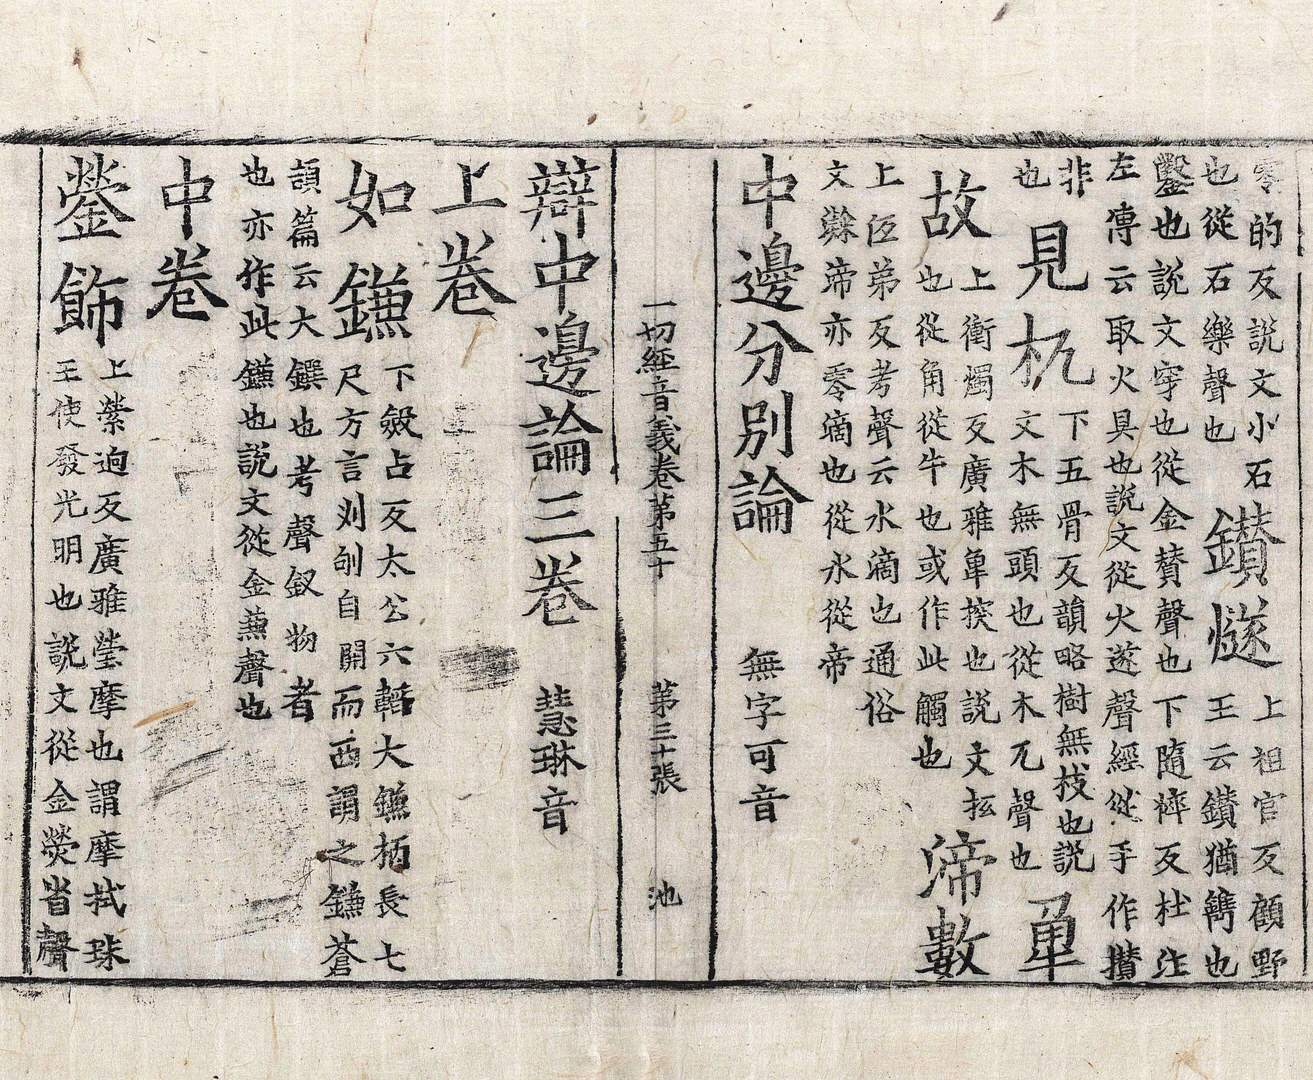 零的反說文小石
也從石樂聲也
鑽燧
上祖官反顧野
王云鑽猶鐫也
鑿也說文穿也從金贊聲也下隨悴反杜注
左傳云取火具也說文從火遂聲經從手作攢
非
也
見杌
下五骨反韻略樹無枝也說
文木無頭也從木兀聲也
觕
故
上衝燭反廣雅觕揬也說文抎
也從角從牛也或作此觸也
渧數
上伍弟反考聲云水滴也通俗
文霡渧亦零滴也從水從帝
中邊分別論
無字可音
一切經音義卷第五十
第三十張
池
辯中邊論三卷
慧琳音
上卷
如鎌
下斂占反太公六韜大鎌柄長七
尺方言刈刨自關而西謂之鎌蒼
頡篇云大鏍也考聲釵物者
也亦作此鐮也說文從金兼聲也
中卷
鎣飾
上縈迥反廣雅瑩摩也謂摩拭珠
王使發光明也說文從金熒省聲